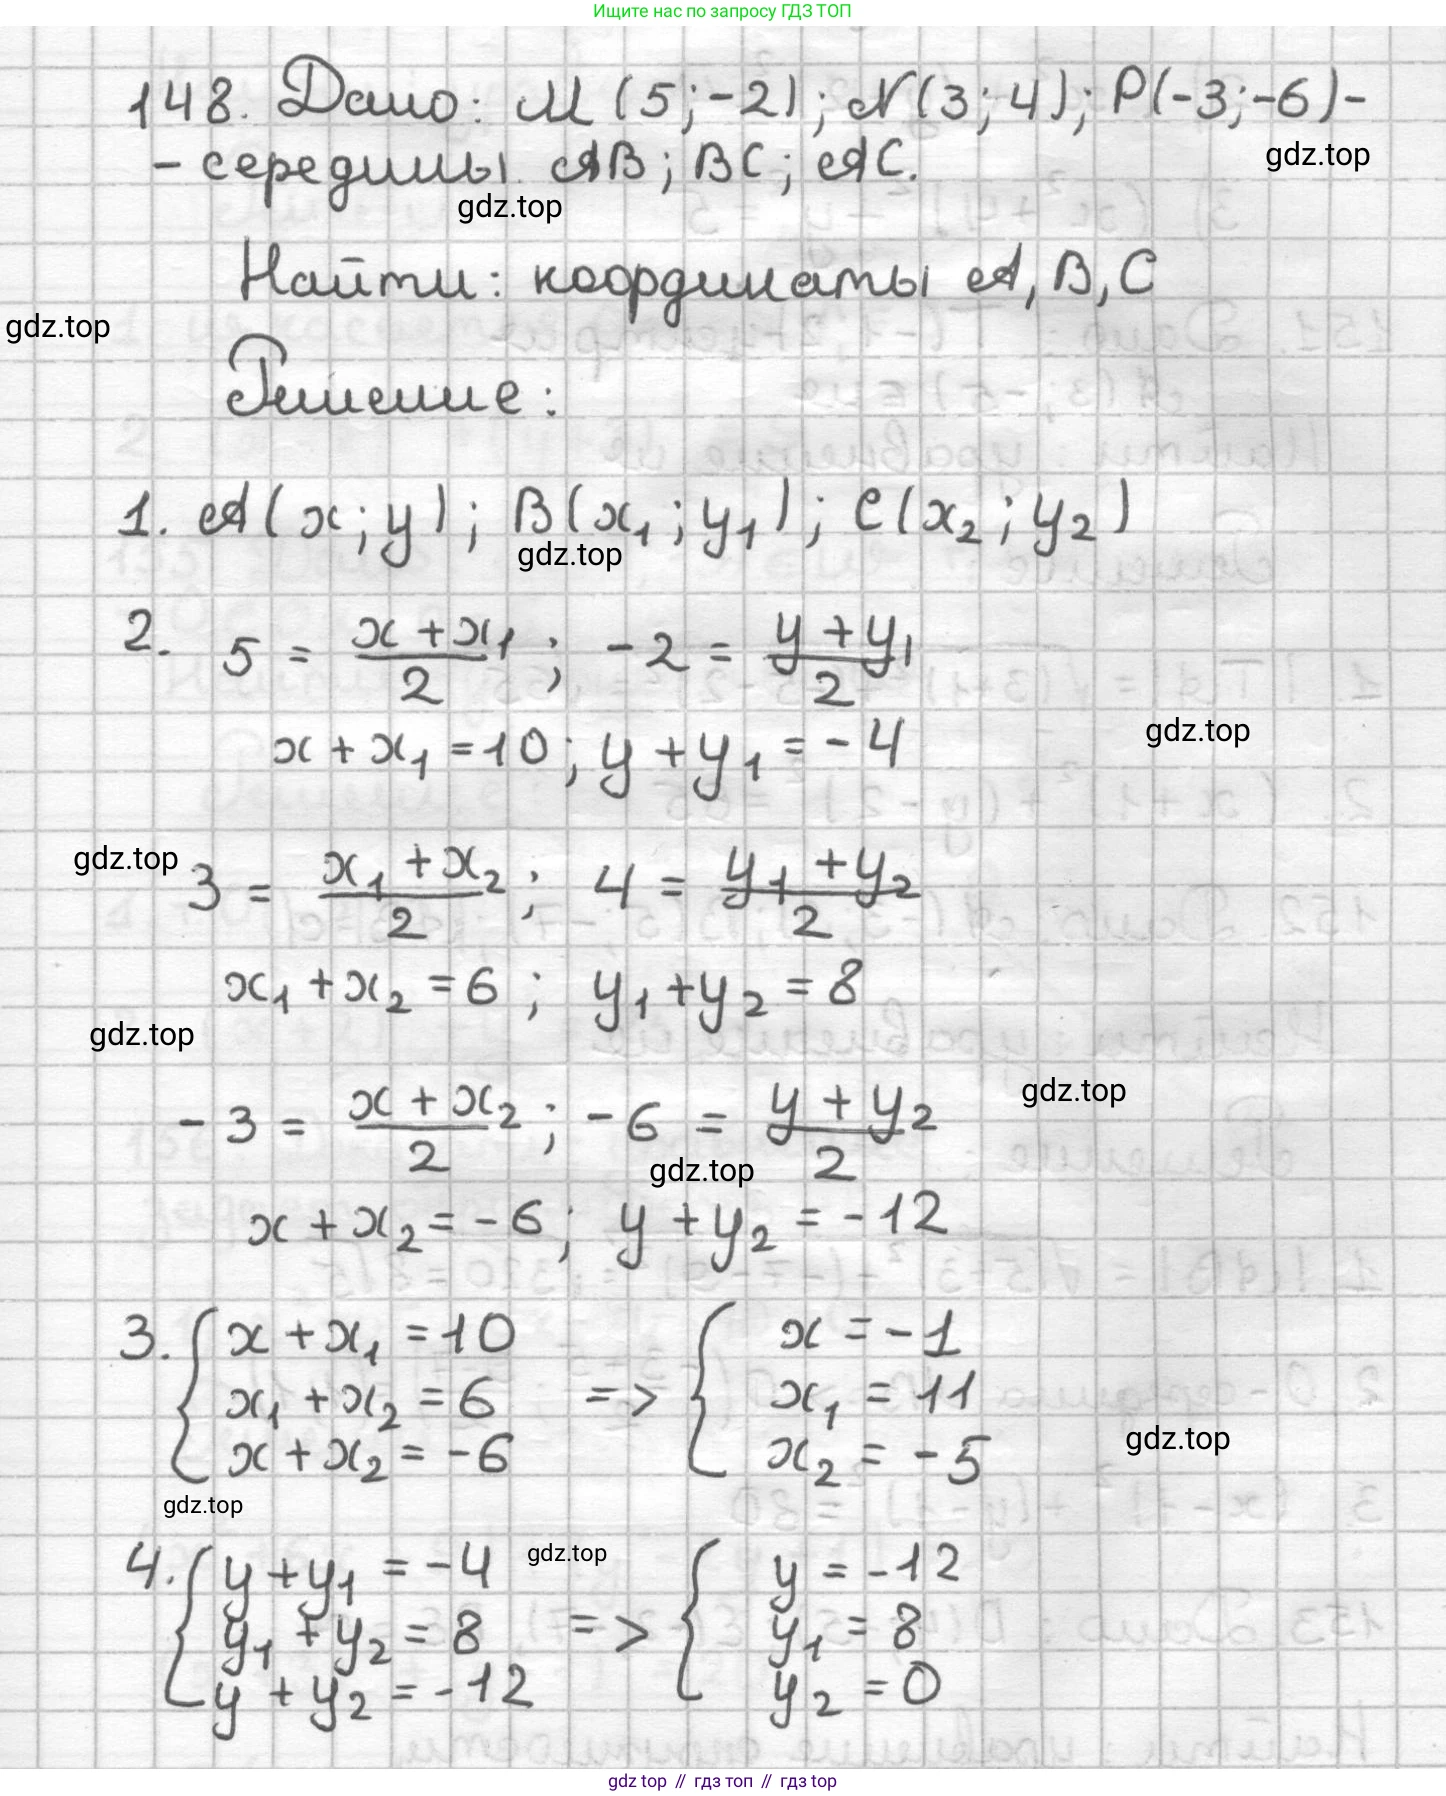 Ищите нас по запросу ГДЗ ТОП
148. Дано: M(5;-2); N(3;4); P(-3;-6)-
gdz.top
- середины AB; BC; AC.
gdz.top
Найти: координаты A, B, C
gdz.top
Решение:
1. A(x;y); B(x₁;y₁); C(x₂;y₂)
gdz.top
2. 5 = (x+x₁)/2; -2 = (y+y₁)/2
x+x₁=10; y+y₁=-4
gdz.top
gdz.top
3 = (x₁+x₂)/2; 4 = (y₁+y₂)/2
x₁+x₂=6; y₁+y₂=8
gdz.top
gdz.top
-3 = (x+x₂)/2; -6 = (y+y₂)/2
gdz.top
x+x₂=-6; y+y₂=-12
3. { x+x₁=10 { x=-1
x₁+x₂=6 => x₁=11
gdz.top
x+x₂=-6 x₂=-5
gdz.top
gdz.top
4. { y+y₁=-4 { y=-12
y₁+y₂=8 => y₁=8
y+y₂=-12 y₂=0
gdz top // гдз топ // гдз top